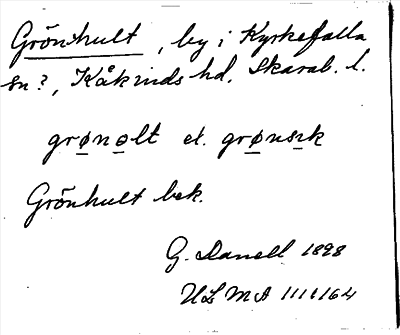 Grönhult, by i Kyrkefalla
sn?, Kåkinds hd. Skarab. l.
grønolt el. grønsık
Grönhult bek.
G. Danell 1898
ULMA 111:164